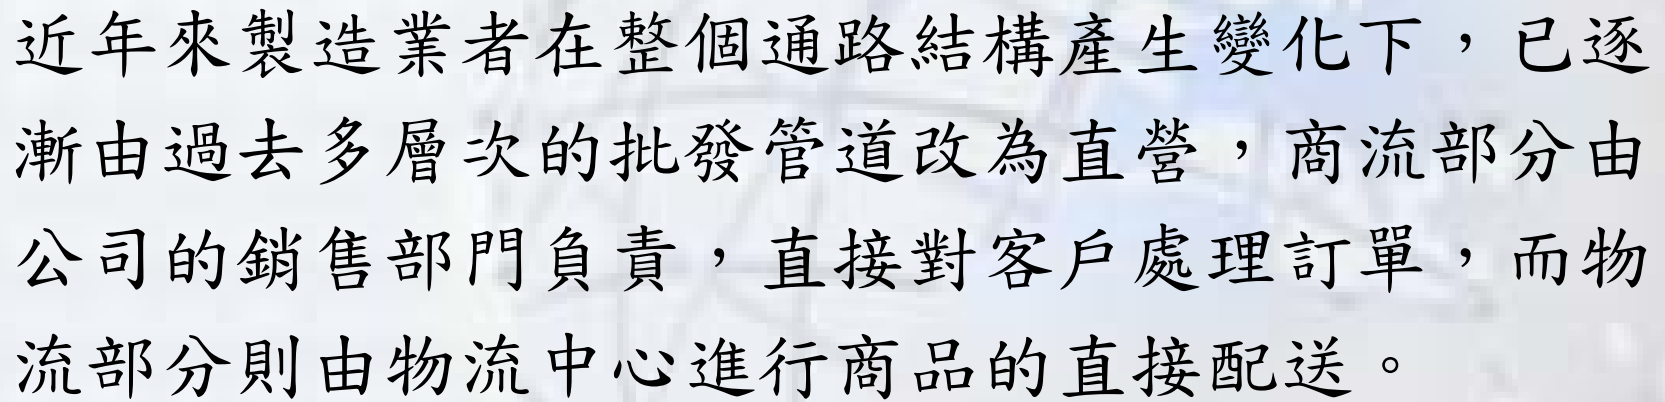 近年來製造業者在整個通路結構產生變化下，已逐
漸由過去多層次的批發管道改為直營，商流部分由
公司的銷售部門負責，直接對客戶處理訂單，而物
流部分則由物流中心進行商品的直接配送。